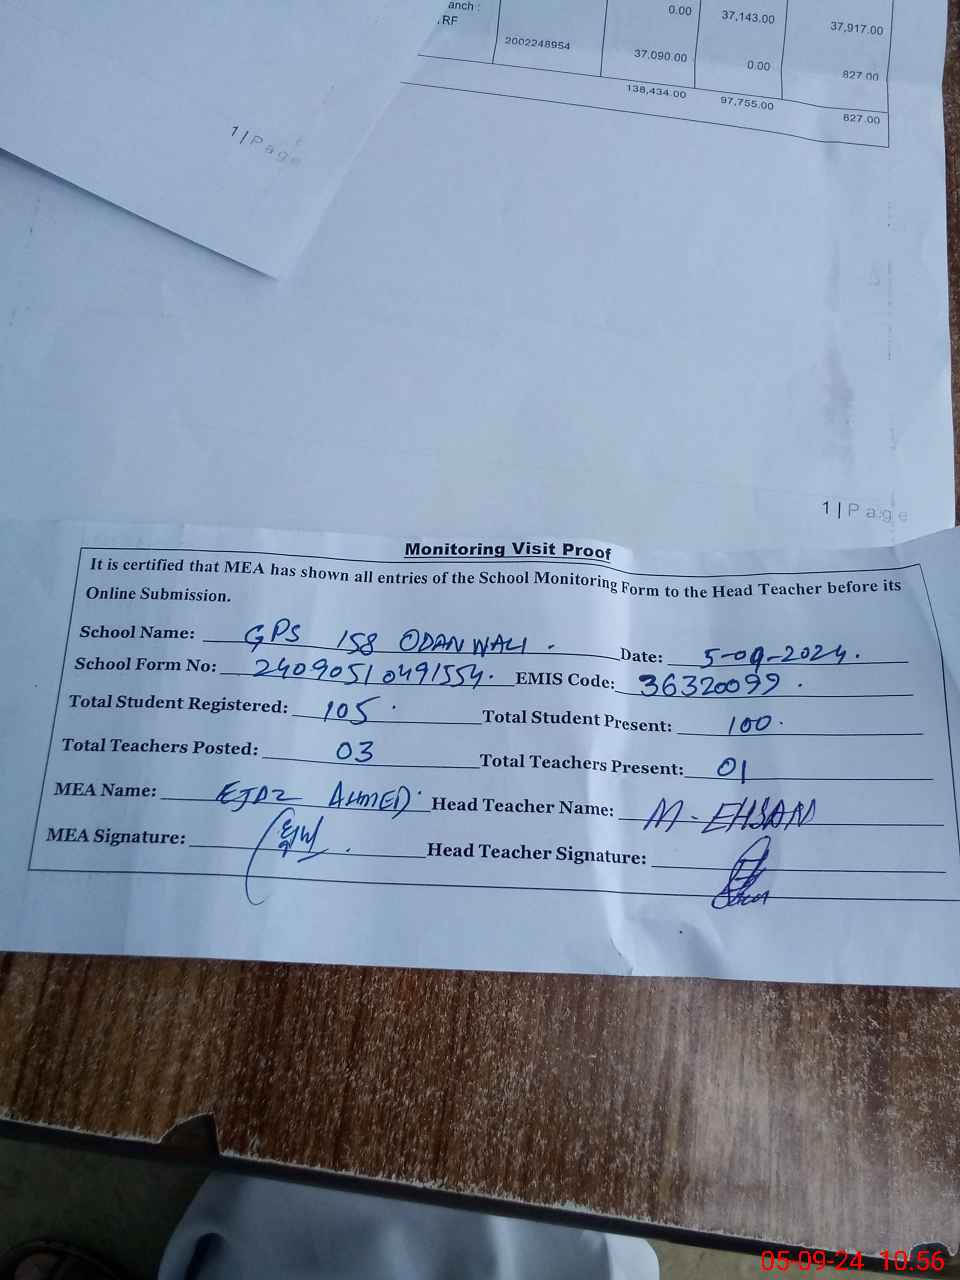 anch :
RF
2002248954
0.00 37,143.00 37,917.00
37,090.00 0.00 827.00
138,434.00 97,755.00 827.00
1 | Page
1 | Page
Monitoring Visit Proof
It is certified that MEA has shown all entries of the School Monitoring Form to the Head Teacher before its
Online Submission.
School Name: GPS 158 ODAN WALI. Date: 5-09-2024.
School Form No: 24090510491554. EMIS Code: 36320099.
Total Student Registered: 105. Total Student Present: 100.
Total Teachers Posted: 03 Total Teachers Present: 01
MEA Name: EJAZ AHMED. Head Teacher Name: M-EHSAN
MEA Signature: Head Teacher Signature:
05-09-24 10:56